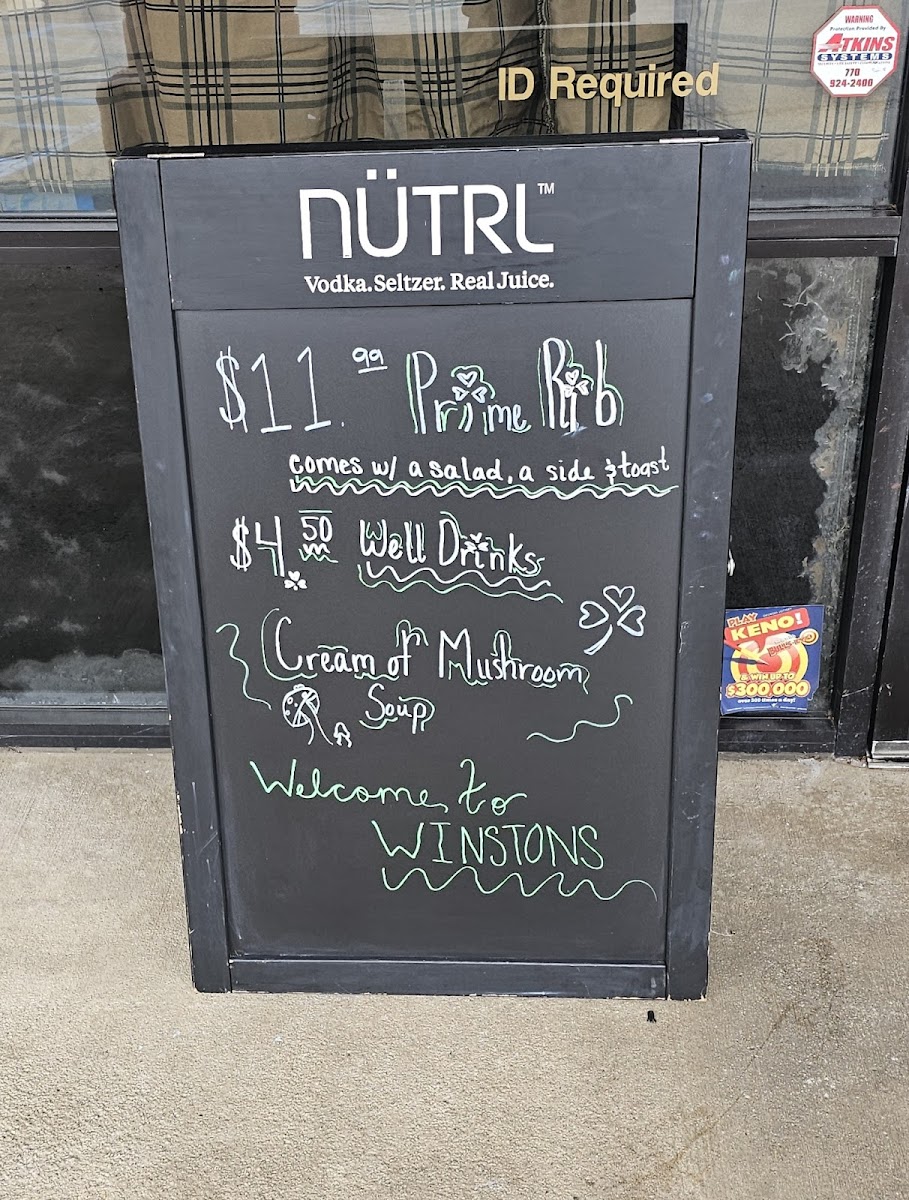 ID Required
WARNING
Protection Provided By
ATKINS
SYSTEMS
770
924-2400
NÜTRL™
Vodka. Seltzer. Real Juice.
$11.99 Prime Rib
comes w/ a salad, a side & toast
$4 50 Well Drinks
Cream of Mushroom
Soup
PLAY
KENO!
BULLS-EYE
& WIN UP TO
$300,000
over 300 times a day!
Welcome to
WINSTONS